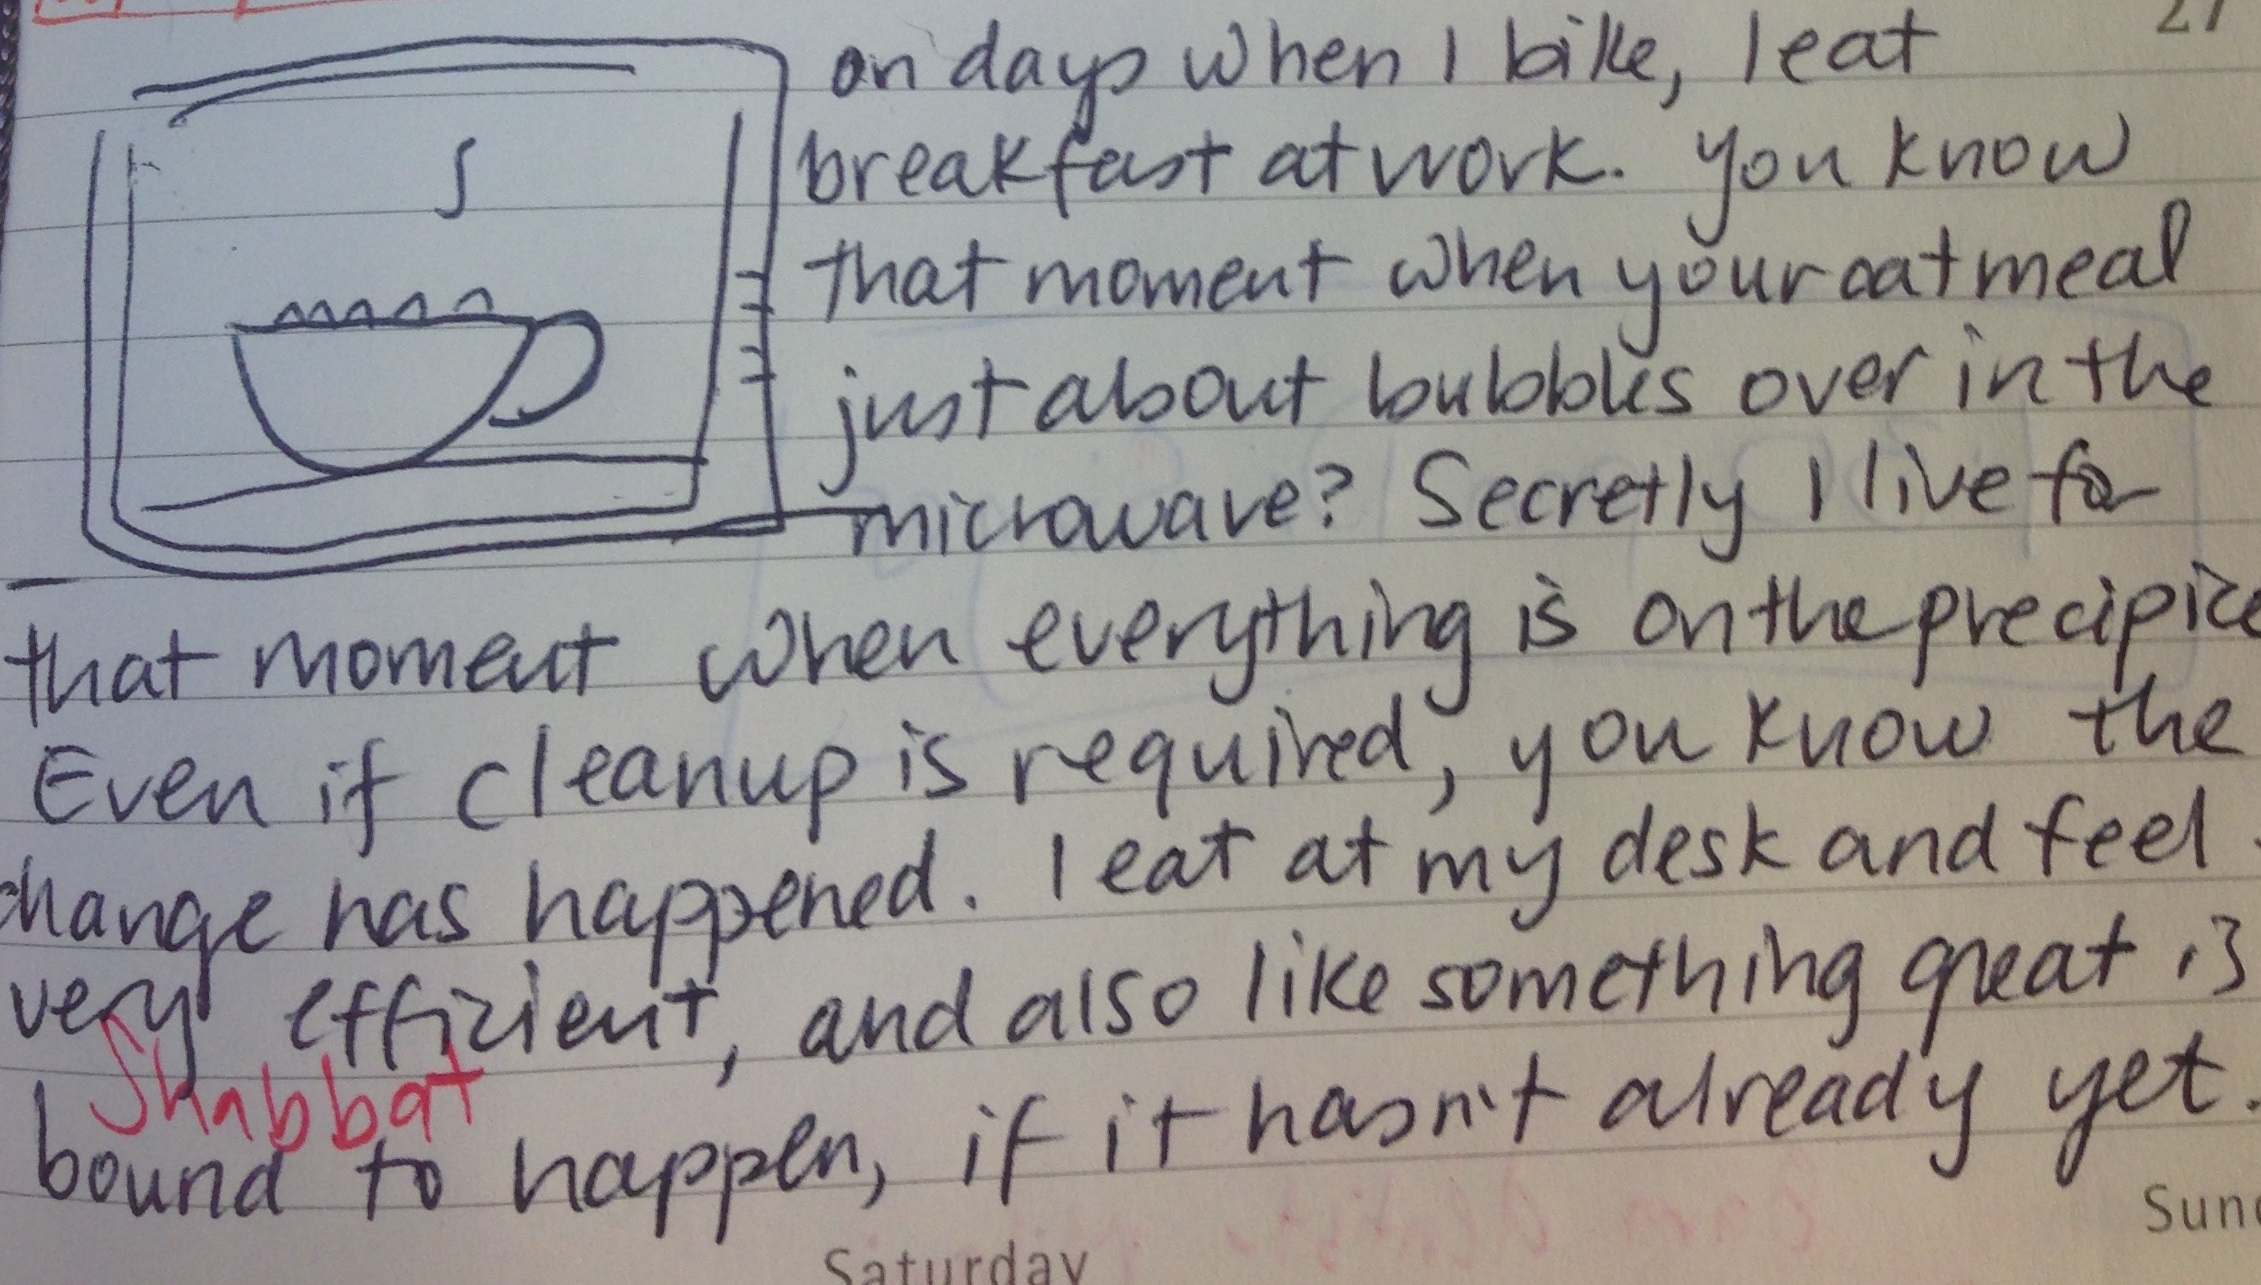 27
on days when I bike, I eat
breakfast at work. you know
that moment when your oatmeal
just about bubbles over in the
microwave? Secretly I live for
that moment when everything is on the precipice
Even if cleanup is required, you know the
change has happened. I eat at my desk and feel
very efficient, and also like something great is
Shabbat
bound to happen, if it hasn't already yet.
Saturday
Sun